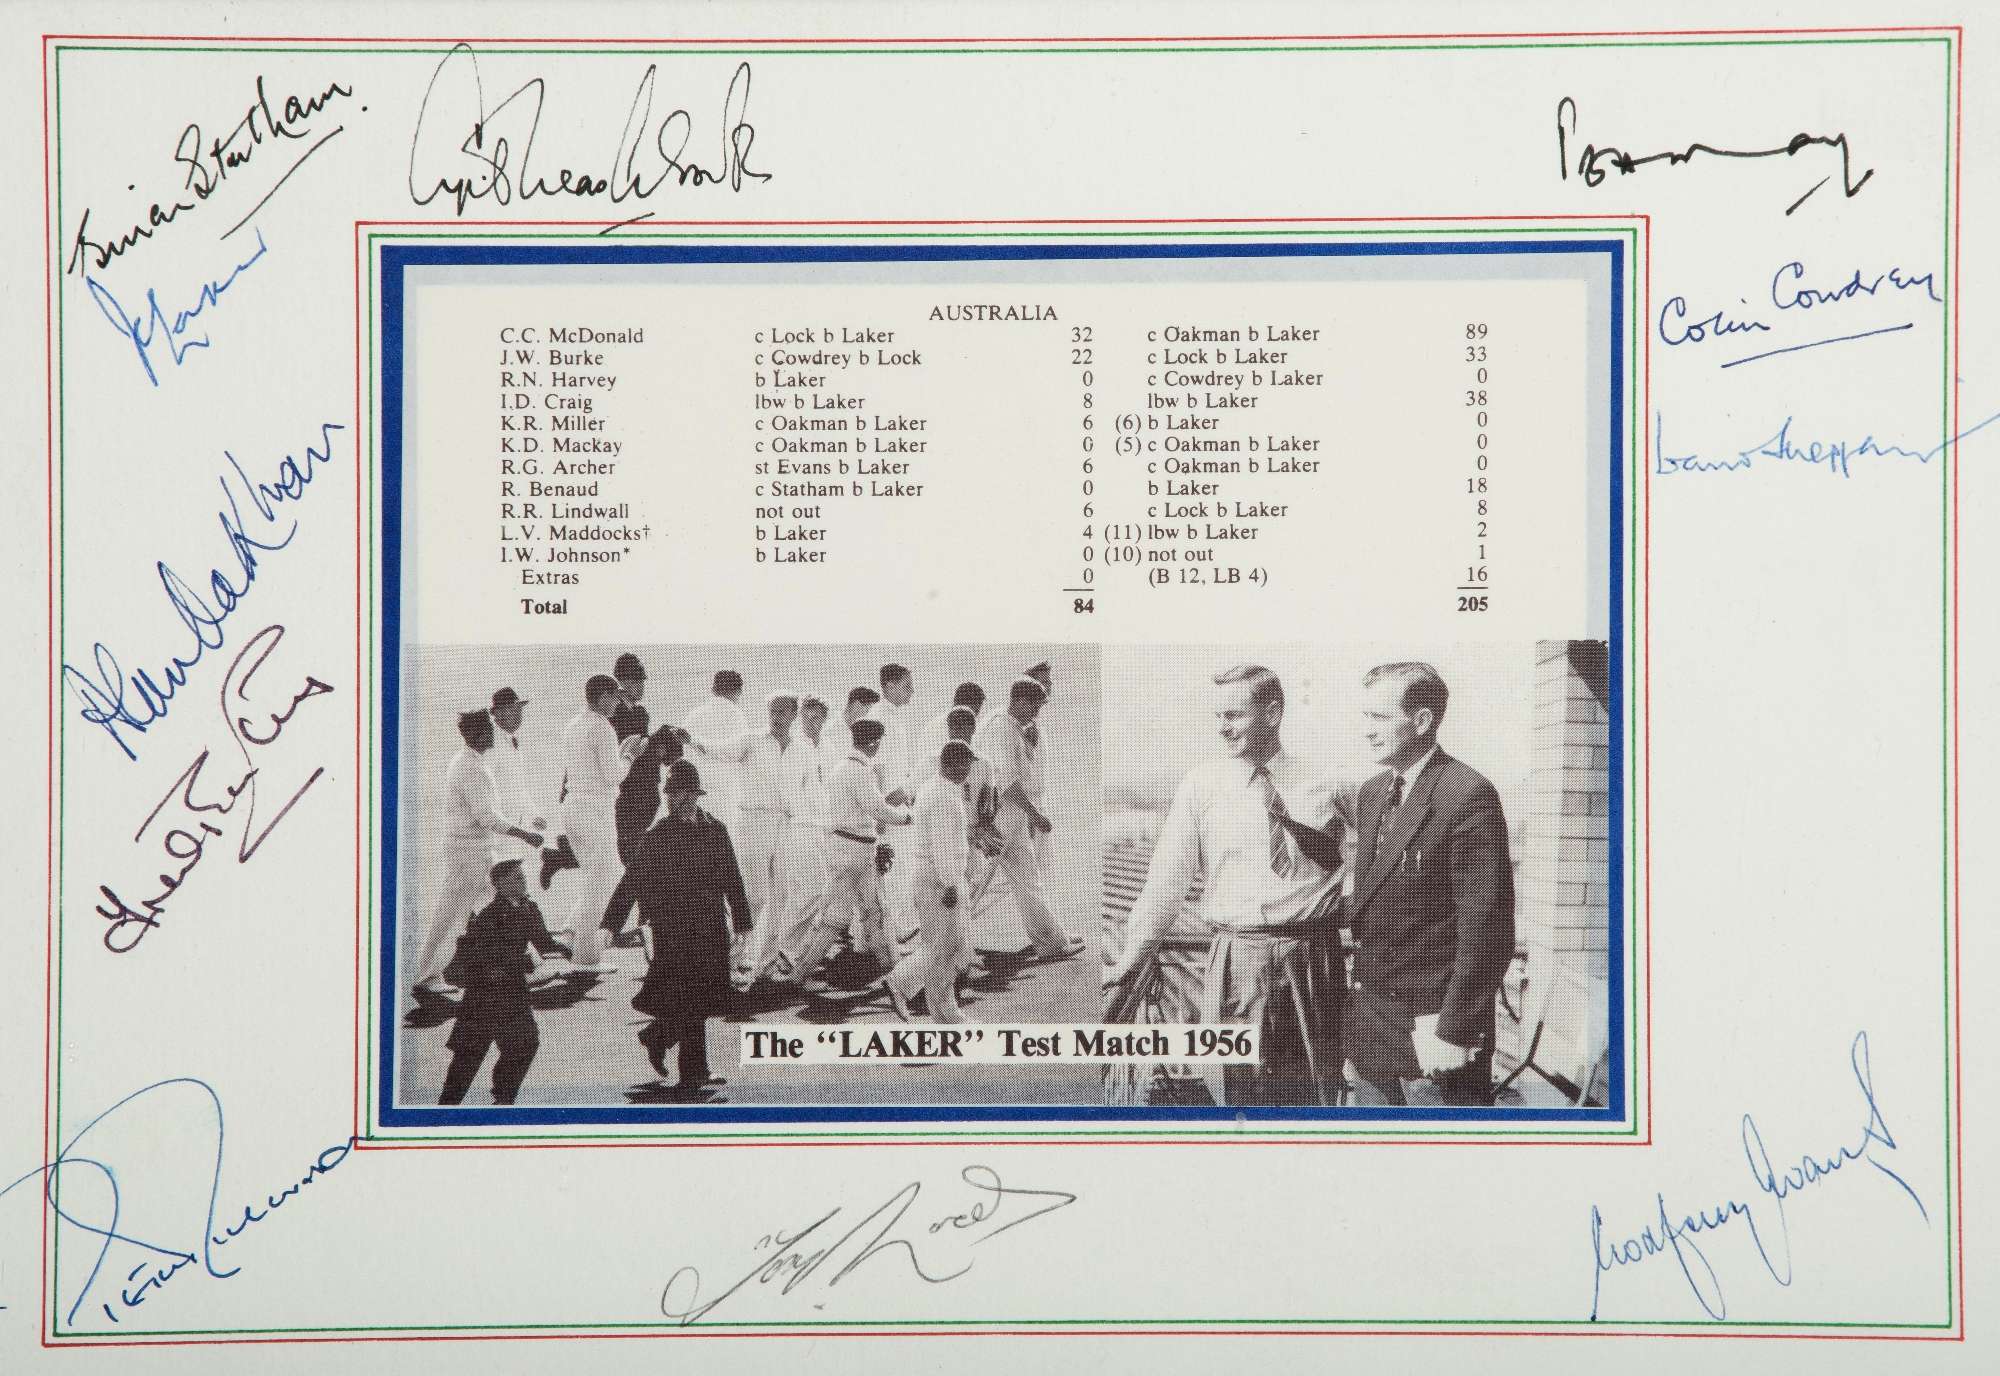 Brian Statham.
Cyril Washbrook
PBH May
J C Laker
Colin Cowdrey
David Sheppard
AUSTRALIA
C.C. McDonald c Lock b Laker 32 c Oakman b Laker 89
J.W. Burke c Cowdrey b Lock 22 c Lock b Laker 33
R.N. Harvey b Laker 0 c Cowdrey b Laker 0
I.D. Craig lbw b Laker 8 lbw b Laker 38
K.R. Miller c Oakman b Laker 6 (6) b Laker 0
K.D. Mackay c Oakman b Laker 0 (5) c Oakman b Laker 0
R.G. Archer st Evans b Laker 6 c Oakman b Laker 0
R. Benaud c Statham b Laker 0 b Laker 18
R.R. Lindwall not out 6 c Lock b Laker 8
L.V. Maddocks† b Laker 4 (11) lbw b Laker 2
I.W. Johnson* b Laker 0 (10) not out 1
Extras 0 (B 12, LB 4) 16
Total 84 205
Alan Oakman
Trevor Bailey
The “LAKER” Test Match 1956
Peter Richardson
Tony Lock
Godfrey Evans